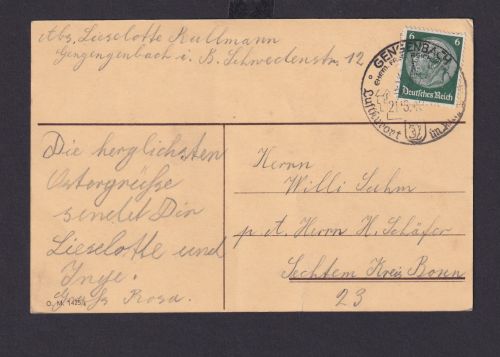 Abs. Lieselotte Kullmann
Gengengenbach i. B. Schwedenstr. 12
6 6
Deutsches Reich
GENGENBACH
Luftkurort
21.3.
Die herzlichsten
Ostergrüße
sendet Dir
Lieselotte und
Inge.
Rosa.
O. M. 1425
Herrn
Willi
p. A. Herrn H. Schäfer
Sechtem Kreis Bonn
23